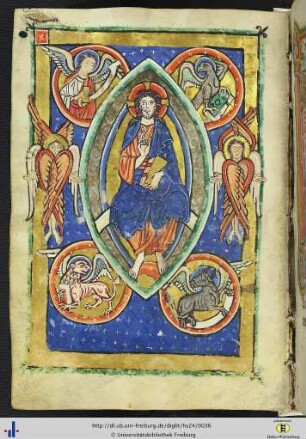 http://dl.ub.uni-freiburg.de/diglit/hs24/0036
© Universitätsbibliothek Freiburg